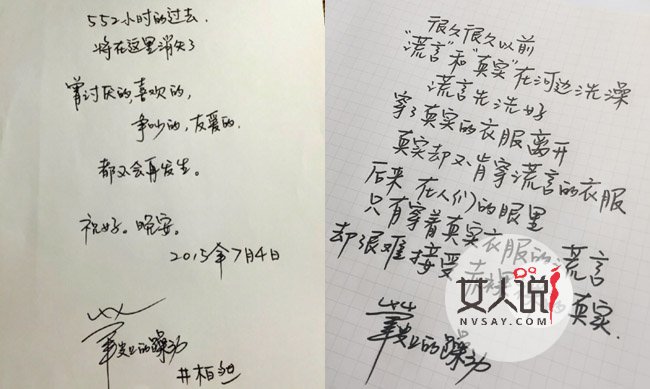 552小时的过去.
将在这里消失了
曾讨厌的,喜欢的,
争吵的,友爱的.
都不会再发生。
祝好。晚安。
2015年7月4日
的躁动
很久很久以前
"谎言"和"真实"在河边洗澡
谎言先洗好
穿了真实的衣服离开
真实却不肯穿谎言的衣服
后来 在人们的眼里
只有穿着真实衣服的谎言
却很难接受赤裸的真实.
的躁动
女人说
NVSAY.COM